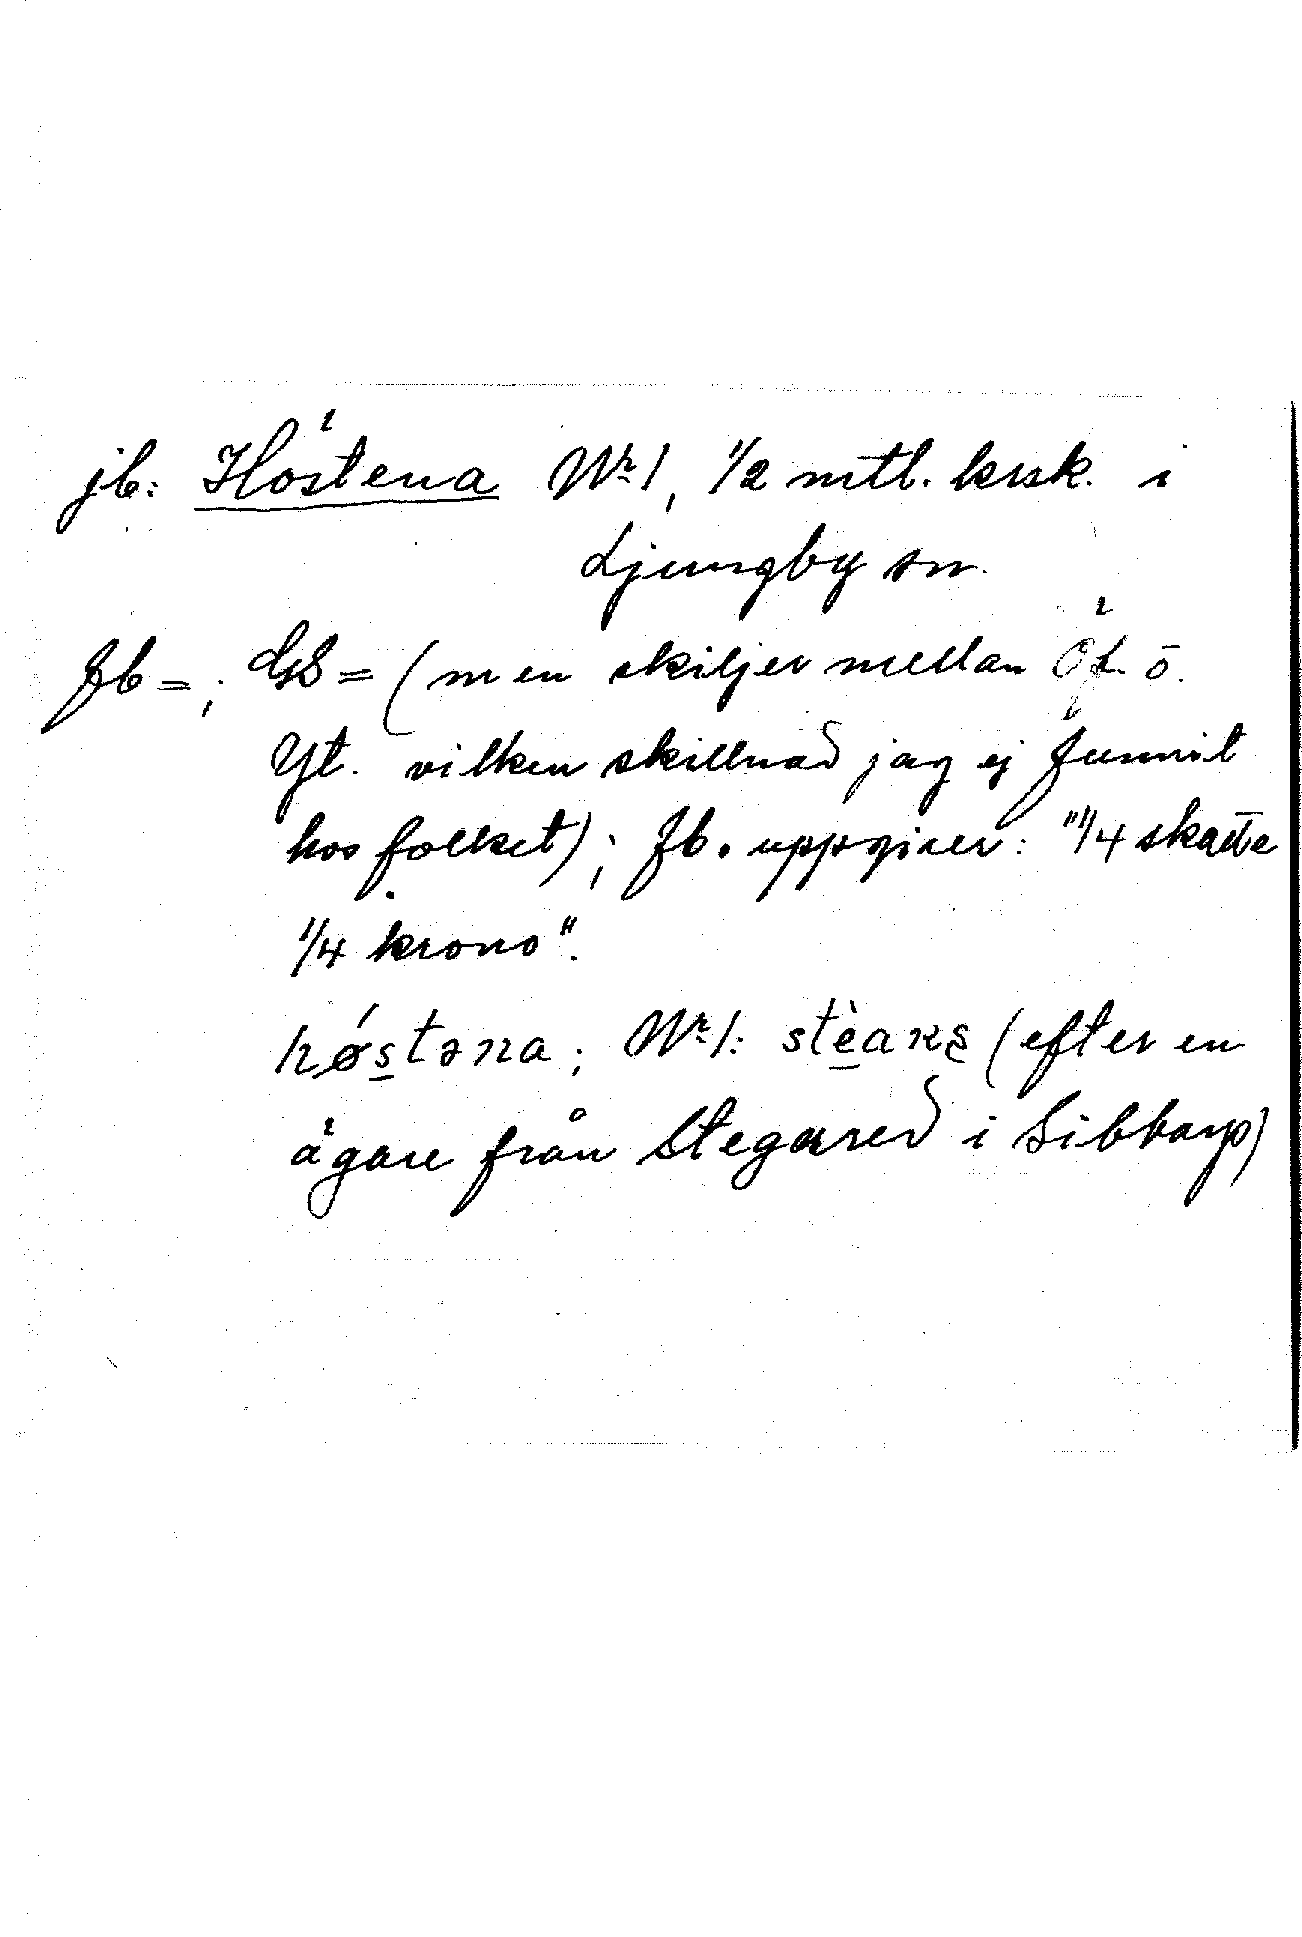 jb: Höstena Nr 1, 1/2 mtl. krsk. i
Ljungby sn.
Jb =; GS = (men skiljer mellan Öf. o.
Yt. vilken skillnad jag ej funnit
hos folket); Jb. uppgiver: "1/4 skatte
1/4 krono".
hǿstəna; Nr 1: stèaʀs (efter en
ägare från Stegared i Sibbarp)